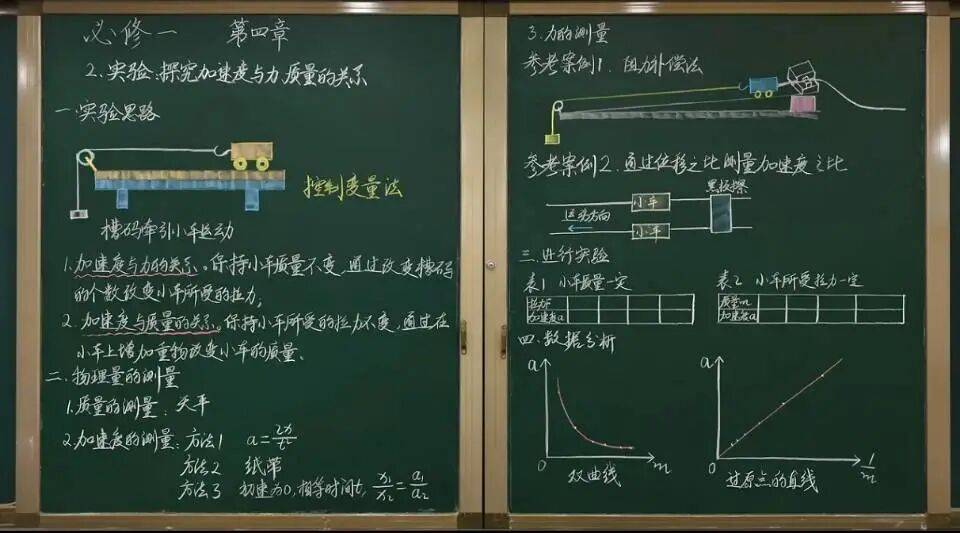 必修一 第四章
2.实验:探究加速度与力、质量的关系
一.实验思路
控制变量法
槽码牵引小车运动
1.加速度与力的关系。保持小车质量不变,通过改变槽码
的个数改变小车所受的拉力。
2.加速度与质量的关系。保持小车所受的拉力不变,通过在
小车上增加重物改变小车的质量。
二.物理量的测量
1.质量的测量:天平
2.加速度的测量:方法1 a=2x/t²
方法2 纸带
方法3 初速为0,相等时间t, x₁/x₂=a₁/a₂
3.力的测量
参考案例1.阻力补偿法
参考案例2.通过位移之比测量加速度之比
黑板擦
小车
运动方向
小车
三.进行实验
表1 小车质量一定
拉力F
加速度a
表2 小车所受拉力一定
质量m
加速度a
四.数据分析
a
0
m
双曲线
a
0
1/m
过原点的直线